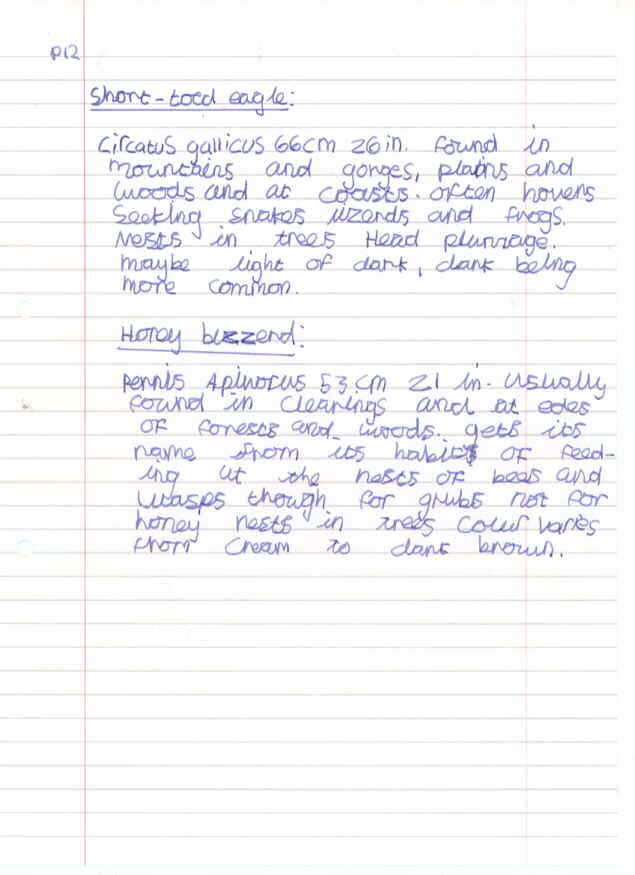 P12
Short-toed eagle:
Circatus gallicus 66cm 26in. found in
mountains and gorges, plains and
woods and at coasts. often hovers
seeking snakes lizerds and frogs.
Nests in trees Head plumage.
maybe light of dark, dark being
more common.
Honey buzzerd:
Pennis Apivorus 53cm 21 in. usually
found in clearings and at edes
of forests and woods. gets its
name from its habits of feed-
ing at the nests of bees and
wasps though for grubs not for
honey nests in trees Colur varies
from cream to dark brown.